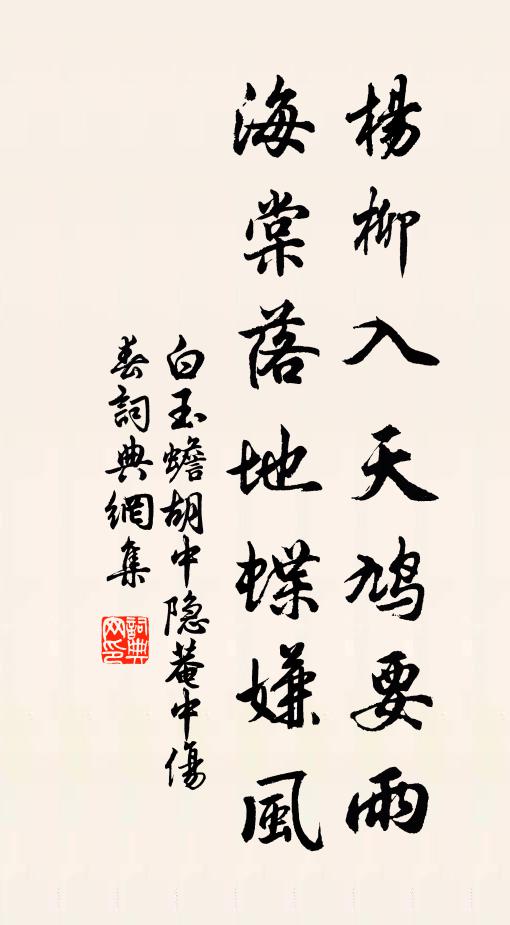 楊柳入天鳩要雨
海棠落地蝶嫌風
白玉蟾胡中隐菴中傷
春詞典網集
詞典网印